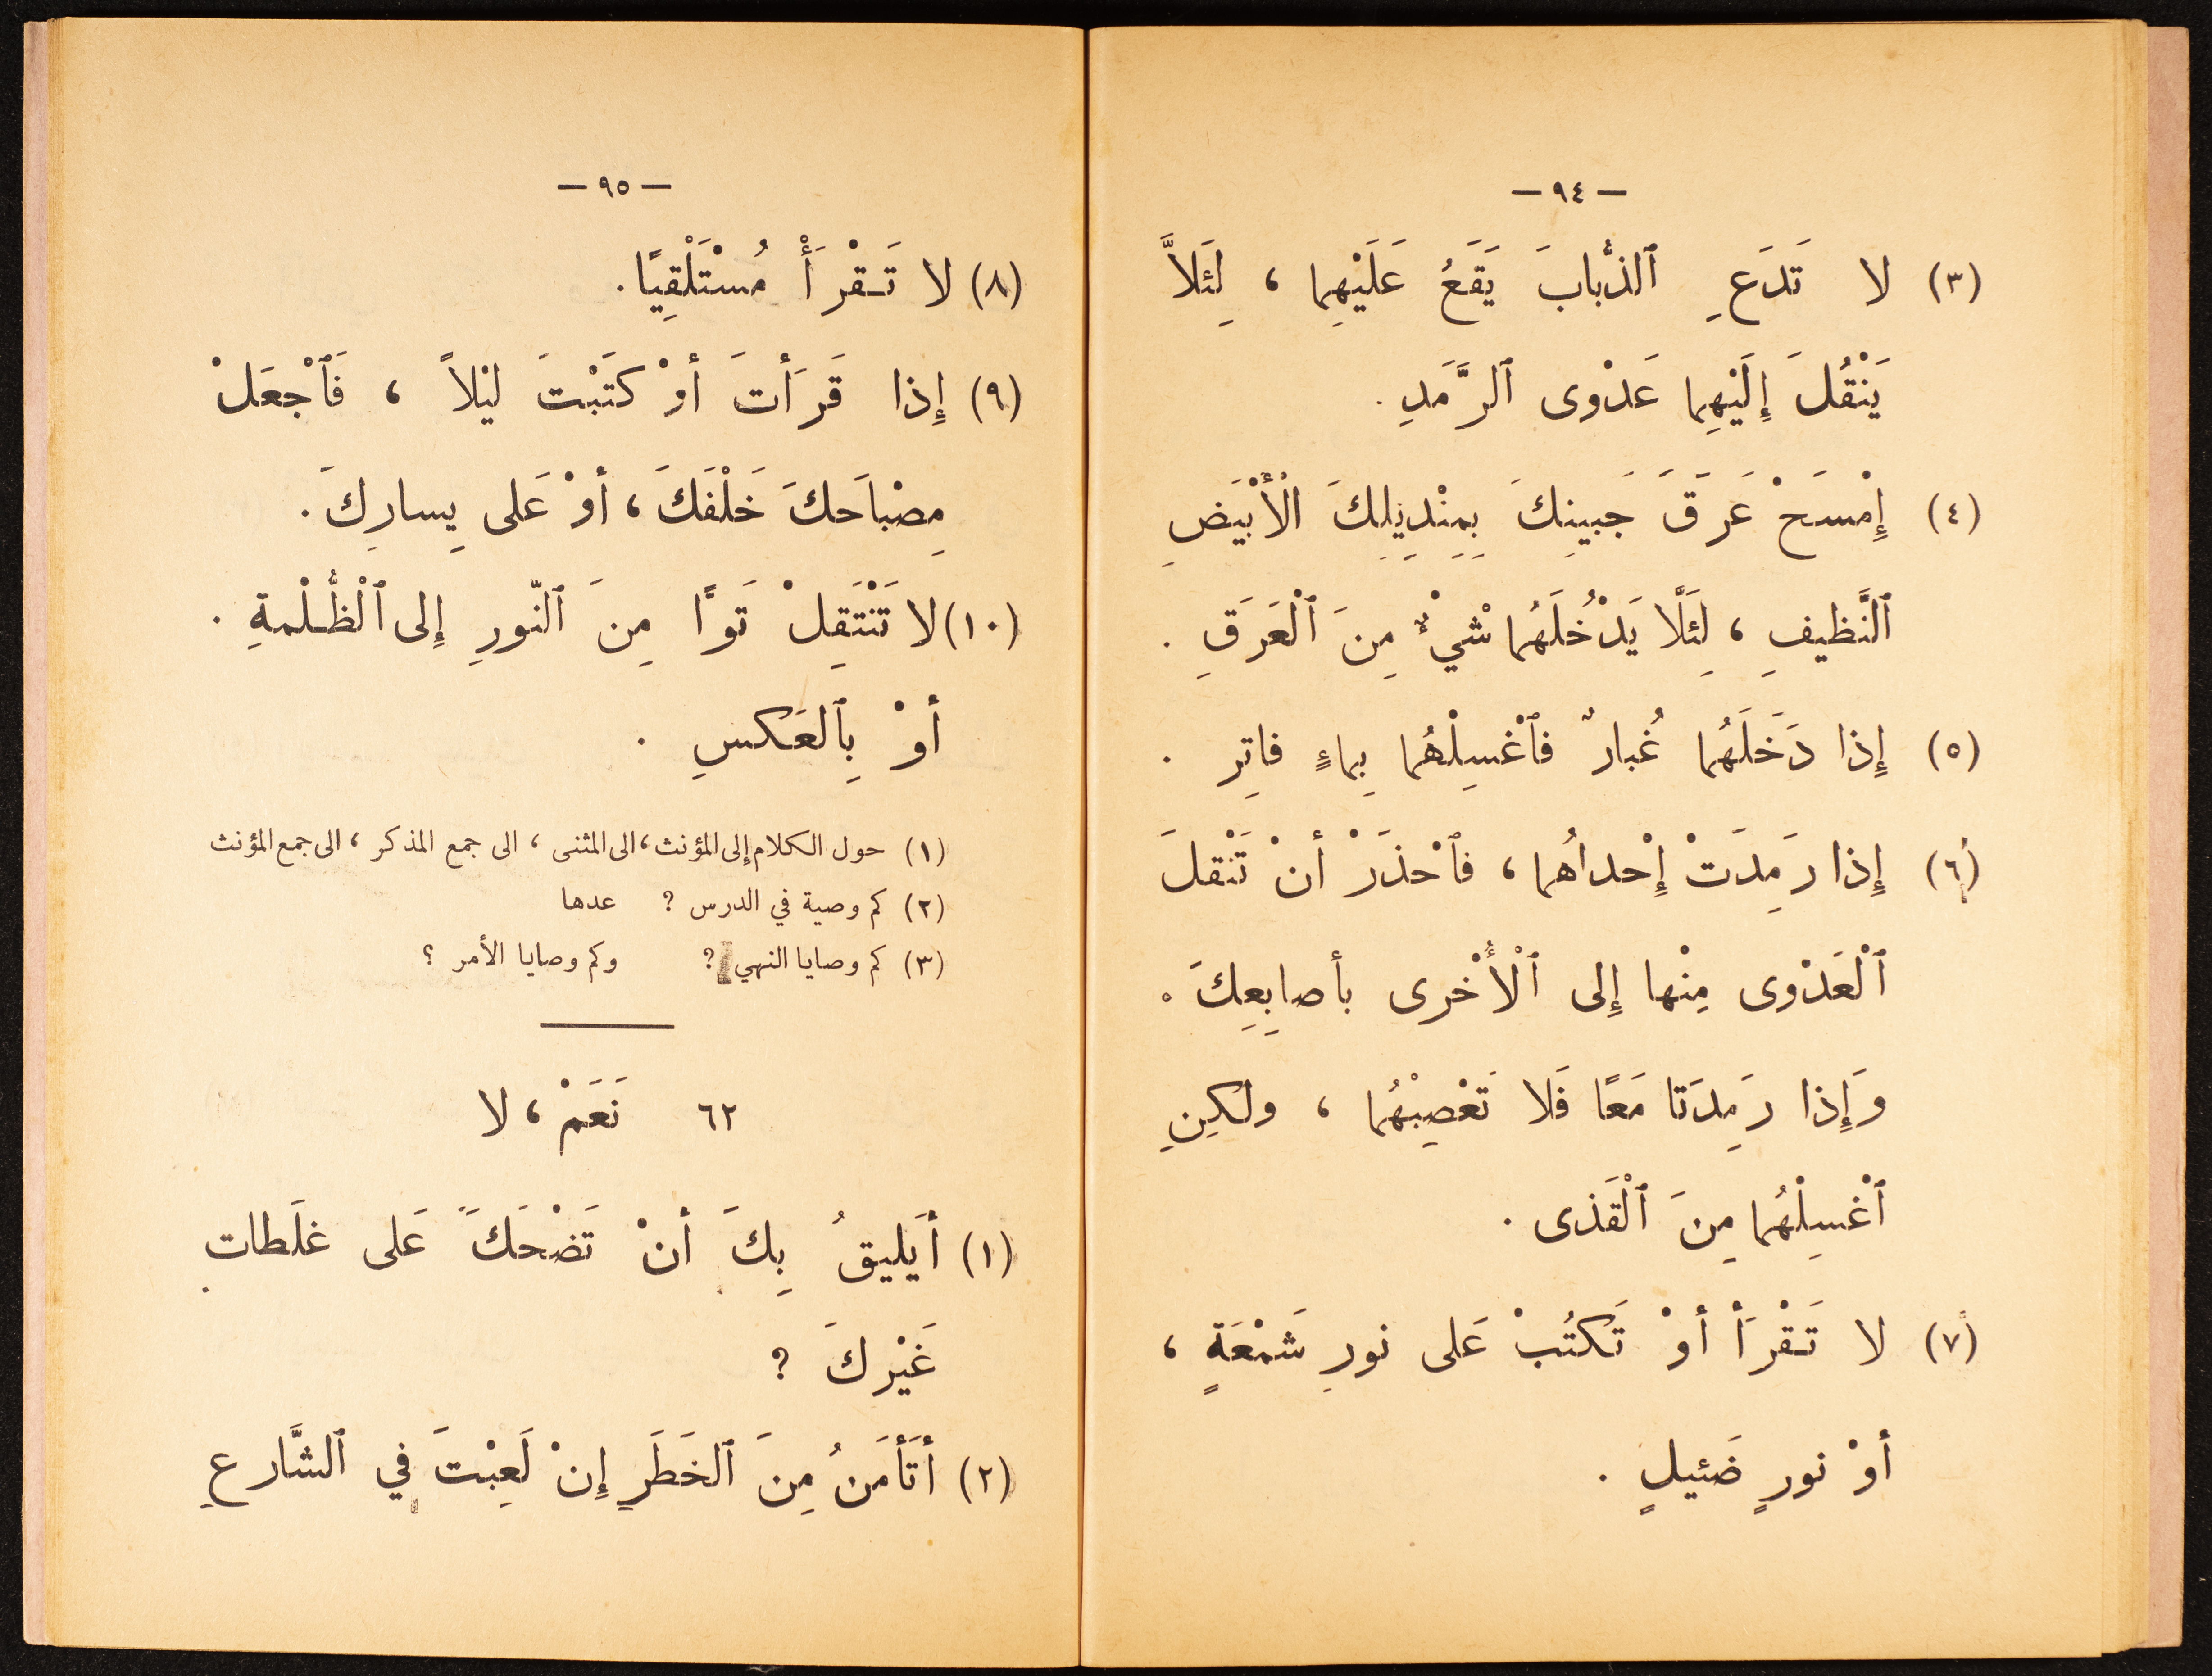 — ٩٤ —
(٣) لا تَدَعِ ٱلذُّبابَ يَقَعُ عَلَيْهِما ، لِئَلاَّ
يَنْقُلَ إِلَيْهِما عَدْوى ٱلرَّمَدِ .
(٤) إِمْسَحْ عَرَقَ جَبينِكَ بِمِنْدِيلِكَ الْأَبْيَضِ
ٱلنَّظيفِ ، لِئَلَّا يَدْخُلَهُما شْيْءٌ مِنَ ٱلْعَرَقِ .
(٥) إِذا دَخَلَهُما غُبارٌ فٱغْسِلْهُما بِماءٍ فاتِرٍ .
(٦) إِذا رَمِدَتْ إِحْداهُما ، فٱحْذَرْ أنْ تَنْقلَ
ٱلْعَدْوى مِنْها إِلى ٱلْأُخْرى بأصابِعِكَ .
وَإِذا رَمِدَتا مَعًا فَلا تَعْصِبْهُما ، ولٰكِنِ
ٱغْسِلْهُما مِنَ ٱلْقَذى .
(٧) لا تَقْرَأْ أوْ تَكتُبْ عَلى نورِ شَمْعَةٍ ،
أوْ نورٍ ضَئيلٍ .
— ٩٥ —
(٨) لا تَقْرَأْ مُسْتَلْقِيًا .
(٩) إِذا قَرَأتَ أوْ كَتَبْتَ ليْلاً ، فَٱجْعَلْ
مِصْباَحكَ خَلْفَكَ ، أوْ عَلى يِسارِكَ .
(١٠) لا تَنْتَقِلْ تَوًّا مِنَ ٱلنّورِ إِلى ٱلْظُّلْمةِ .
أوْ بِٱلعَكسِ .
(١) حول الكلام إلى المؤنث ، الى المثنى ، الى جمع المذكر ، الى جمع المؤنث
(٢) كم وصية في الدرس ? عدها
(٣) كم وصايا النهي ? وكم وصايا الأمر ؟
٦٢ نَعَمْ ، لا
(١) أيَليقُ بِكَ أنْ تَضْحَكَ عَلى غلَطاتِ
غَيْرِكَ ?
(٢) أتَأمَنُ مِنَ ٱلخَطَرِ إِنْ لَعِبْتَ في ٱلشَّارعِ